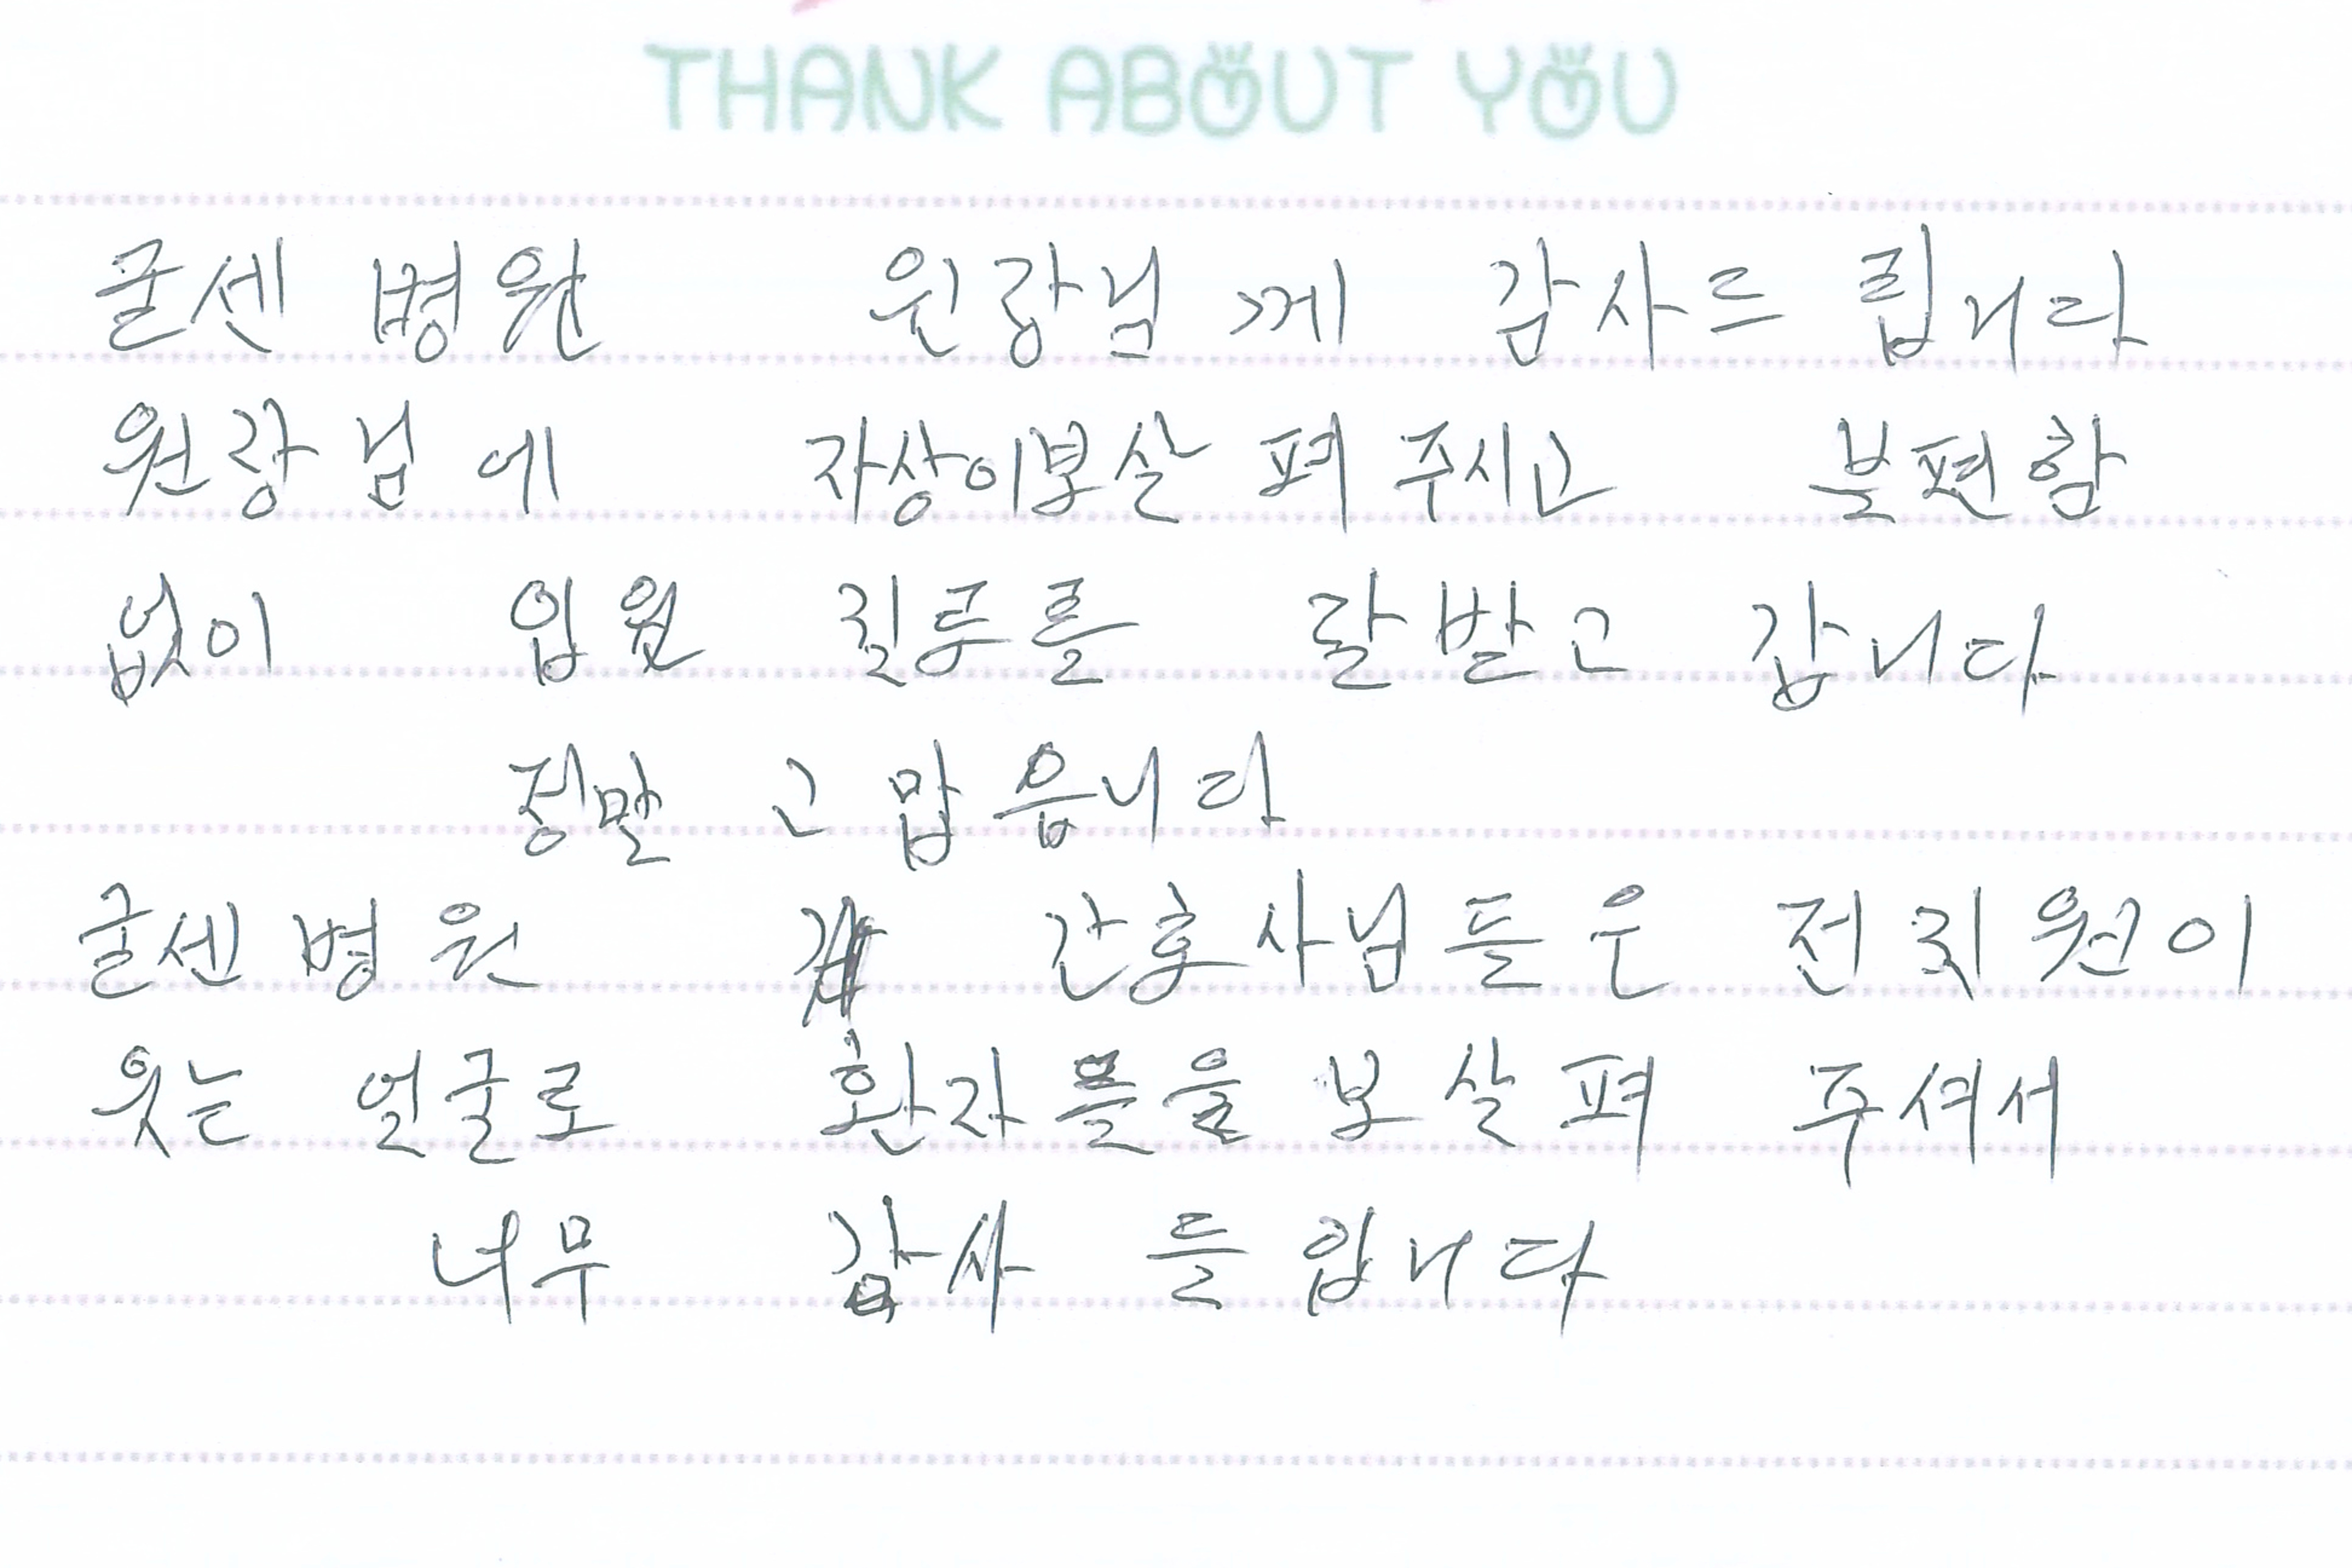 THANK ABOUT YOU
굴센 병원 원장님께 감사드립니다
원장님에 자상이보살펴주시고 불편함
없이 입원 질루를 잘받고 갑니다
정말 고맙읍니다
굴센병원 간호사님들은 전직원이
웃는 얼굴로 환자들을 보살펴 주셔서
너무 감사 들입니다